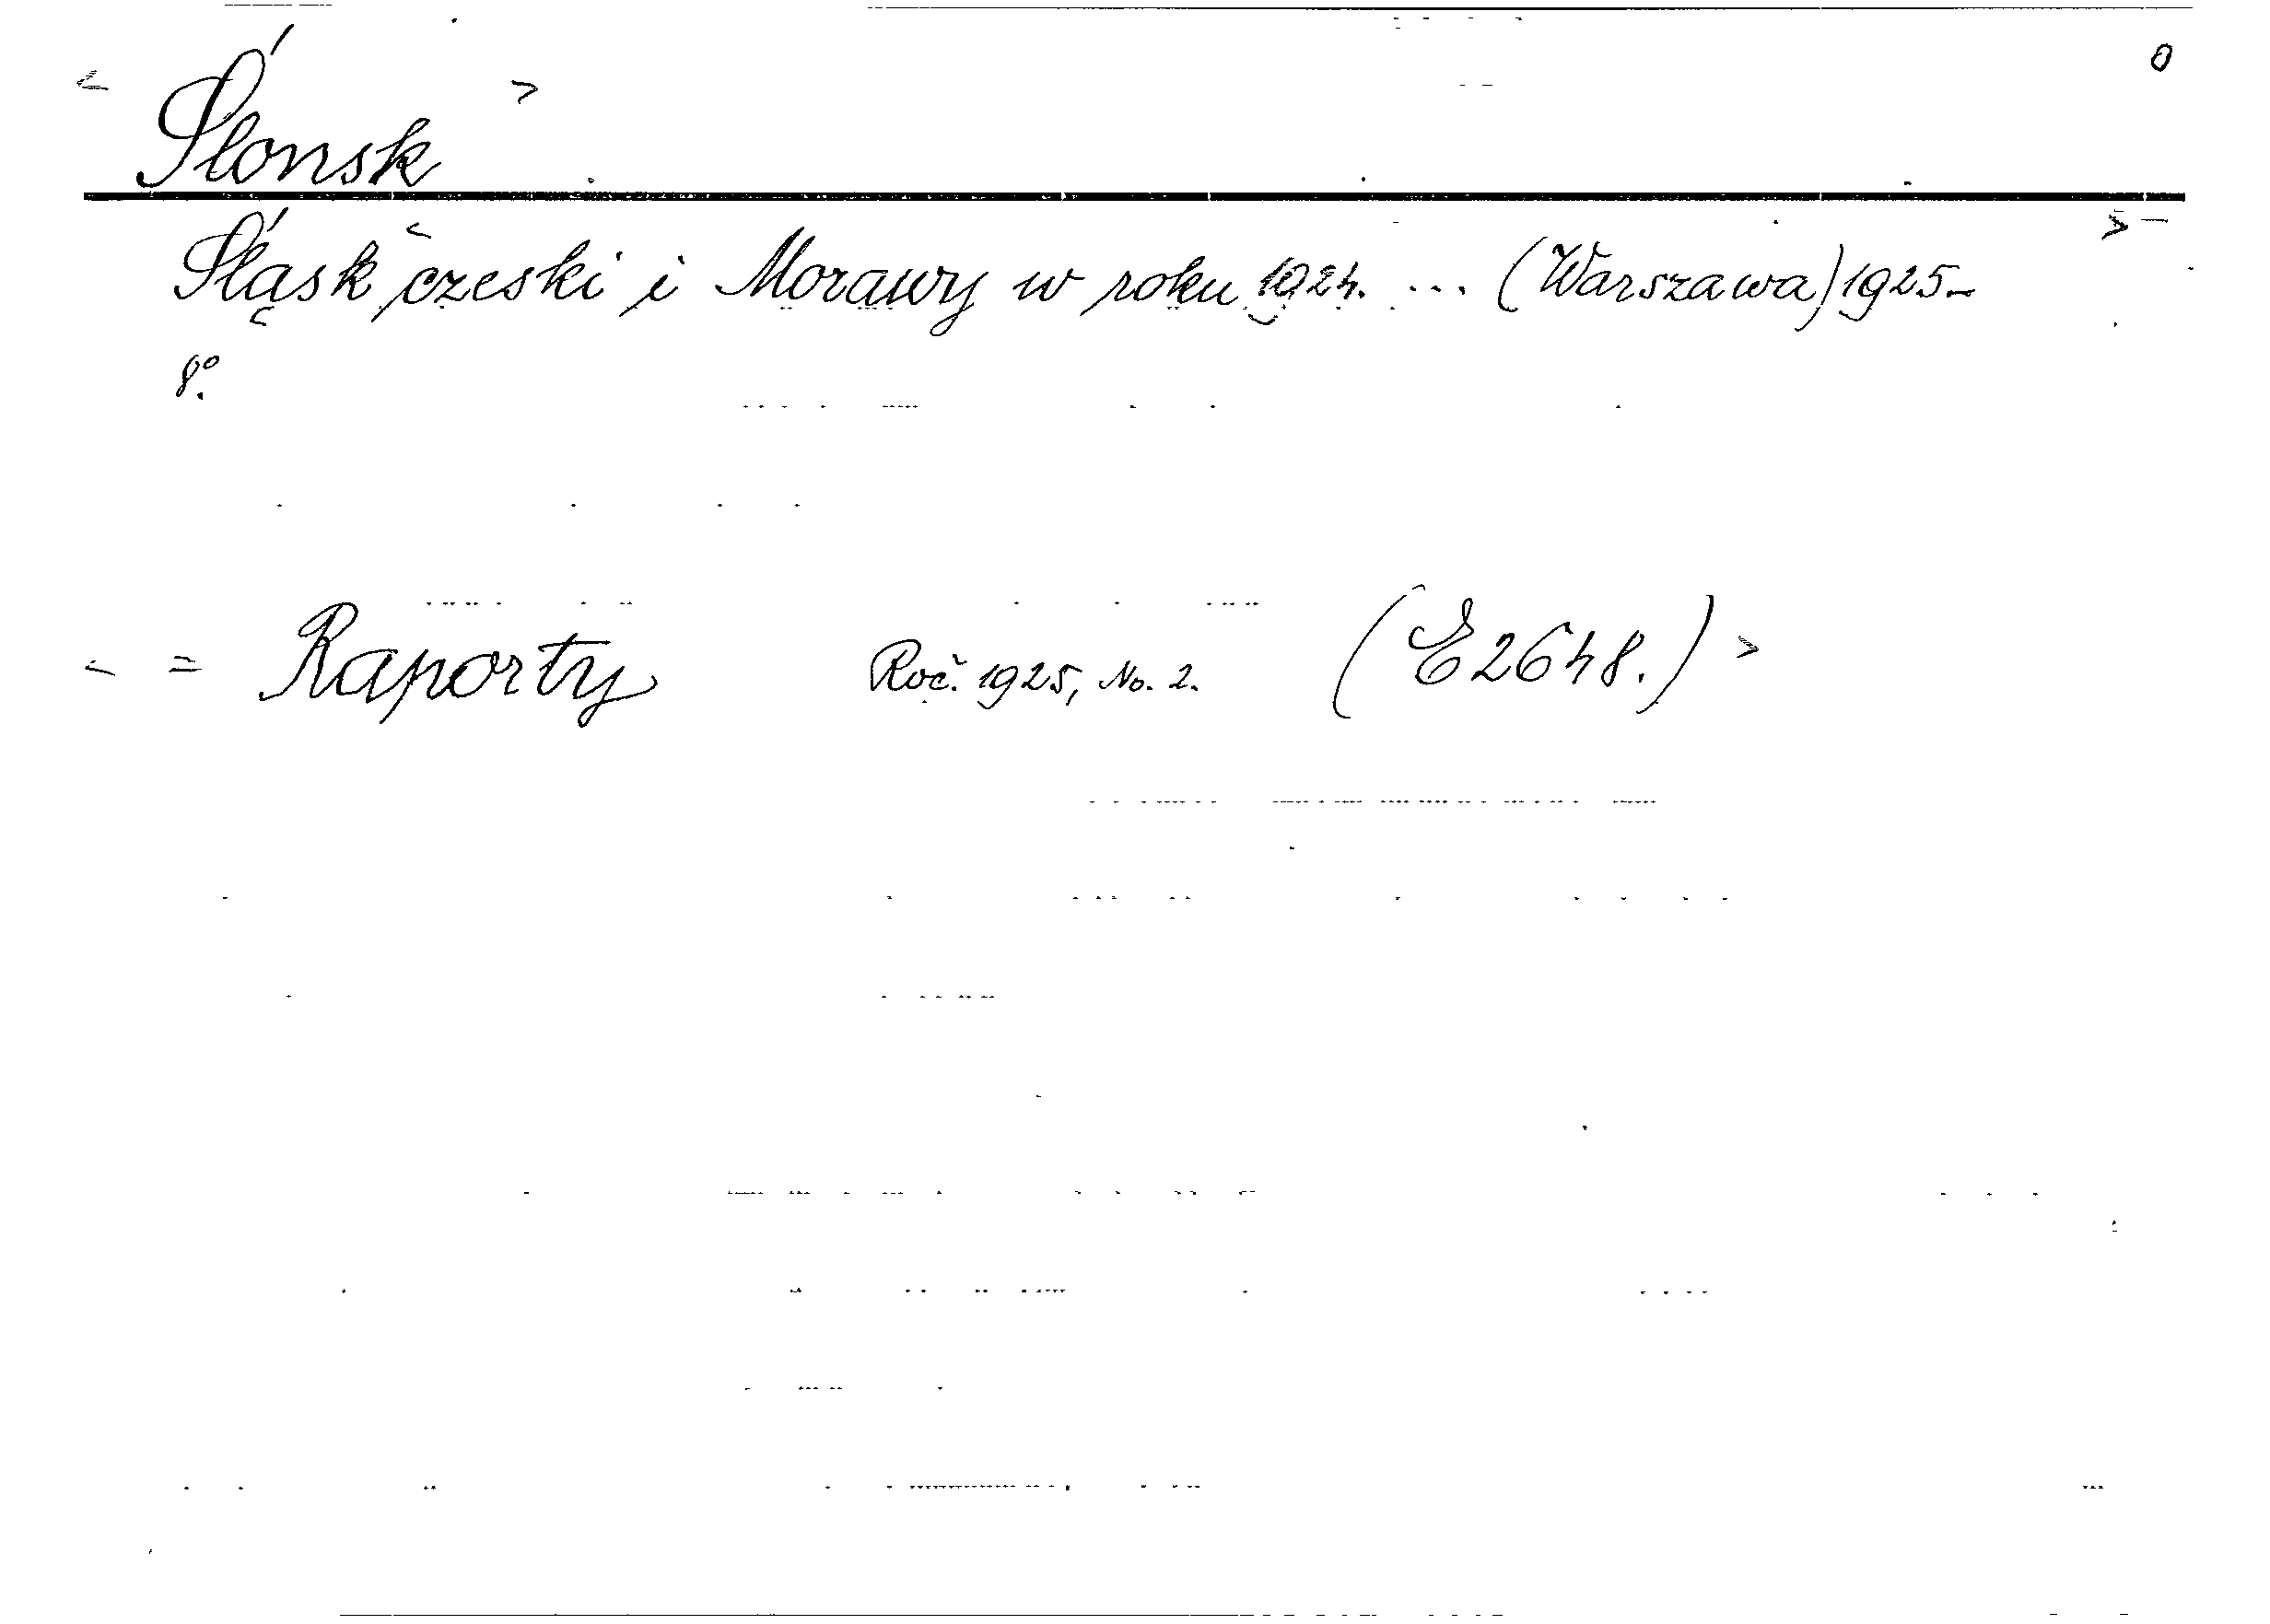 < Ślonsk > 0
Śląsk < czeski i Morawy w roku 1924. ... (Warszawa) 1925- >
8°.
< = Raporty Roč. 1925, No. 2. (E2648.) >